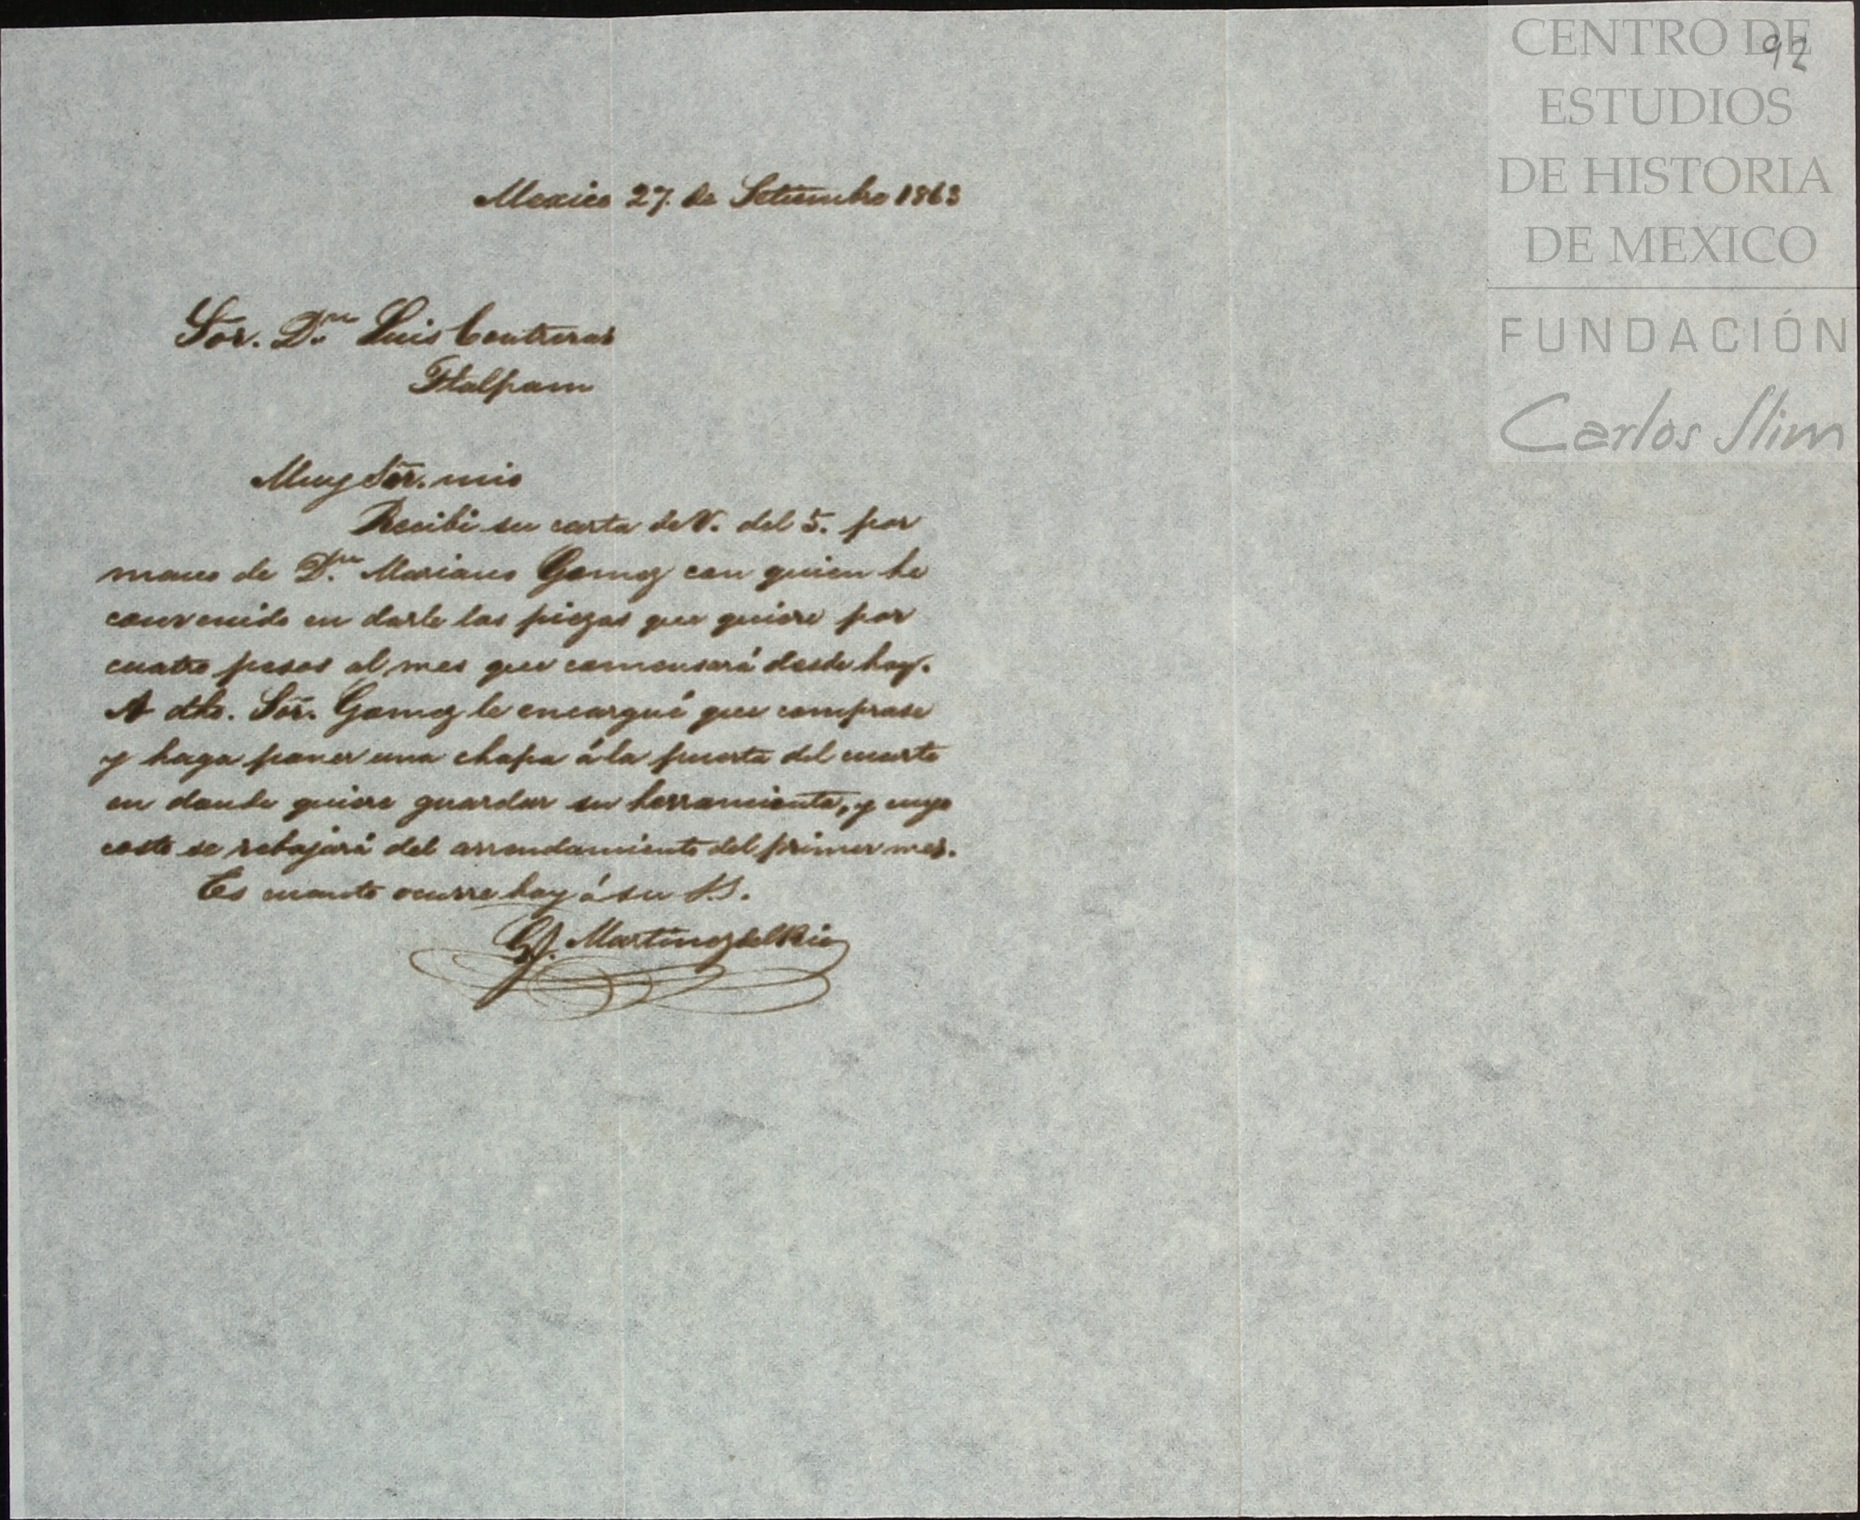 92
CENTRO DE
ESTUDIOS
DE HISTORIA
DE MEXICO
FUNDACIÓN
Carlos Slim
Mexico 27. de Setiembre 1863
Sor. Dn. Luis Contreras
Tlalpam
Muy Sor. mio
Recibi su carta de V. del 5. por
mano de Dn. Mariano Gomez con quien he
convenido en darle las piezas que quiere por
cuatro pesos al mes que comensará desde hoy.
A dho. Sor. Gomez le encargué que comprase
y haga poner una chapa á la puerta del cuarto
en donde quiere guardar su herramienta, y cuyo
costo se rebajará del arrendamiento del primer mes.
Es cuanto ocurre hoy á su S.
Martinez del Rio